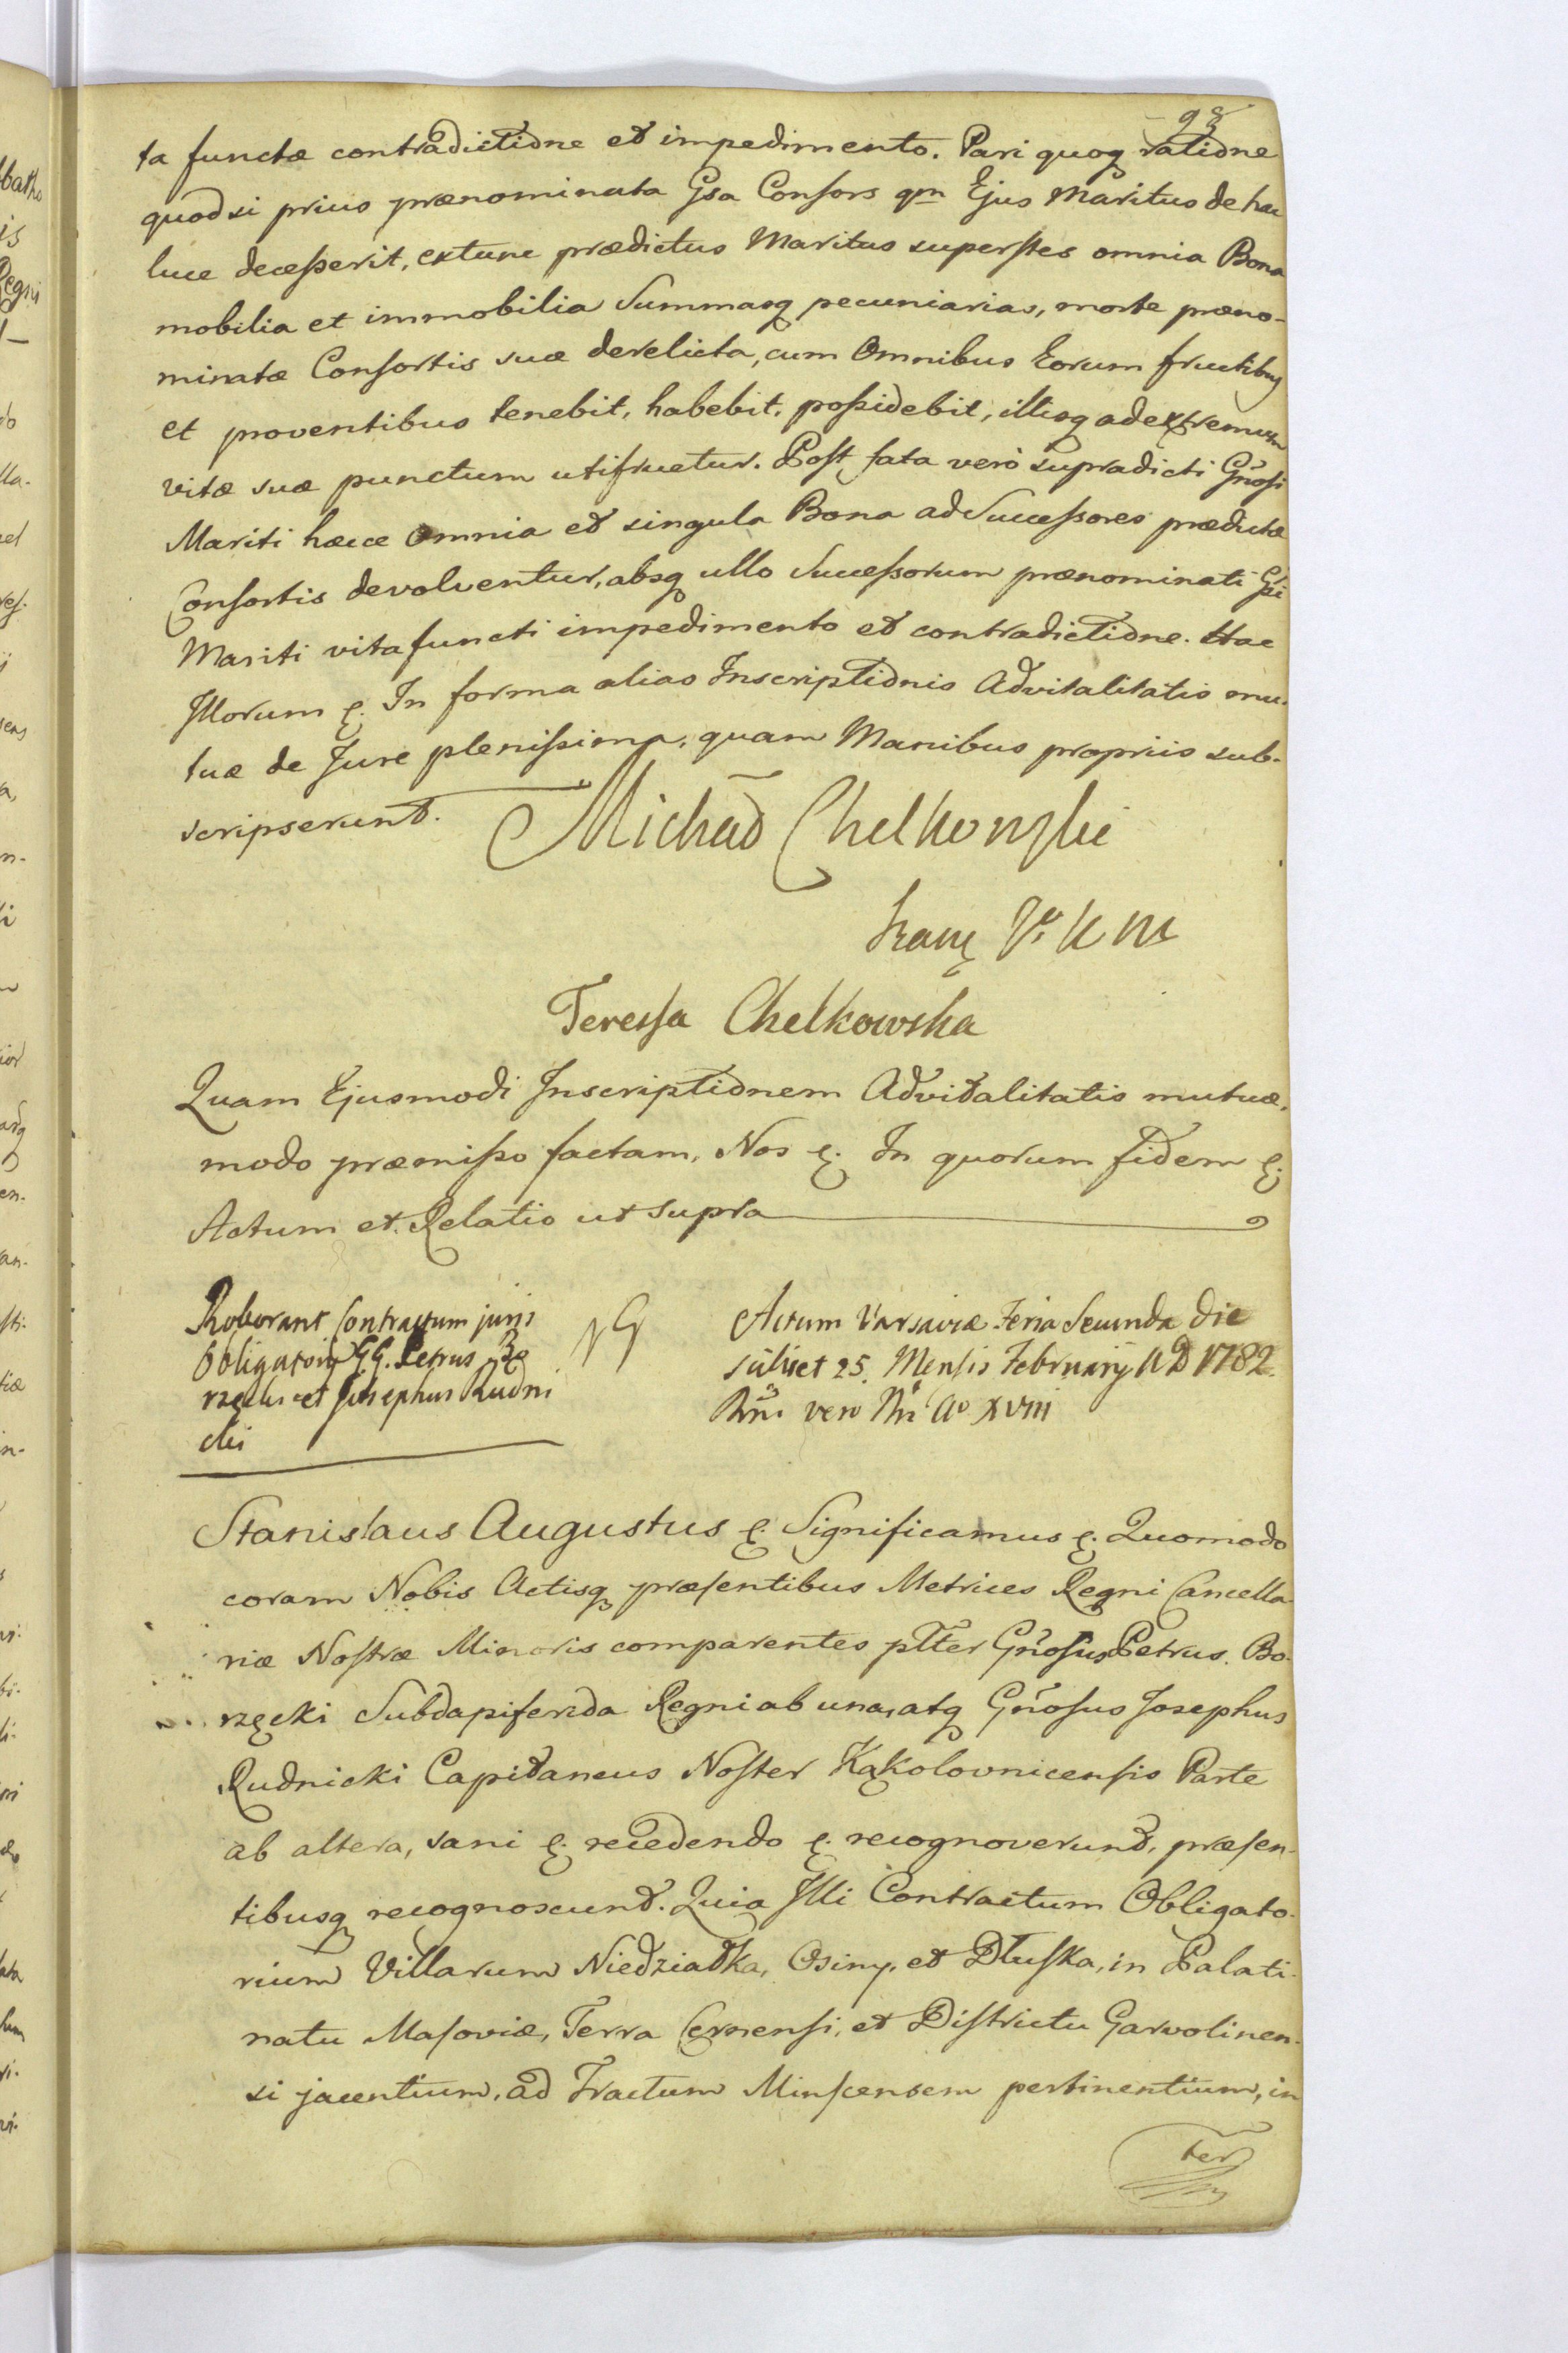 93
ta functæ contradictione et impedimento. Pari quoq ratione
quodsi prius prænominata Gsa Consors qm Ejus Maritus de hac
luce decesserit, extunc prædictus Maritus superstes omnia Bona
mobilia et immobilia Summasq pecuniarias, morte præno-
minatæ Consortis suæ derelicta, cum Omnibus Eorum fructibus
et proventibus tenebit, habebit, possidebit, illisq ad extremum
vitæ suæ punctum utifruetur. Post fata verò supradicti Gnosi
Mariti hæcce omnia et singula Bona ad Successores prædictæ
Consortis devolventur, absq ullo Successorum prænominati Gsi
Mariti vita functi impedimento et contradictione. Hac
Illorum &. In forma alias Inscriptionis Advitalitatis mu-
tuæ de Jure plenissima, quam Manibus propriis sub-
scripserunt. Michał Chelkowski
Teressa Chelkowska
Quam Ejusmodi Inscriptionem Advitalitatis mutuæ,
modo præmisso factam, Nos &. In quorum fidem &.
Actum et Relatio ut supra
Roborant Contractum juris
Obligatorij GG. Petrus Bo
rzęcki et Josephus Rudni
cki
Actum Varsaviæ Feria Secunda die
scilicet 25. Mensis Februarij AD 1782.
Rñi vero Nri Ao XVIII
Stanislaus Augustus &. Significamus &. Quomodo
coram Nobis Actisq præsentibus Metrices Regni Cancella-
riæ Nostræ Minoris comparentes plter Gnosus Petrus Bo-
rzęcki Subdapiferida Regni ab una, atq Gnosus Josephus
Rudnicki Capitaneus Noster Kąkolovnicensis Parte
ab altera, sani &. recedendo &. recognoverunt, præsen-
tibusq recognoscunt. Quia Illi Contractum Obligato-
rium Villarum Niedziatka, Osiny, et Dłuska, in Palati-
natu Masoviæ, Terra Cernensi, et Districtu Garvolinen-
si jacentium, ad Tractum Minscensem pertinentium, in
ter